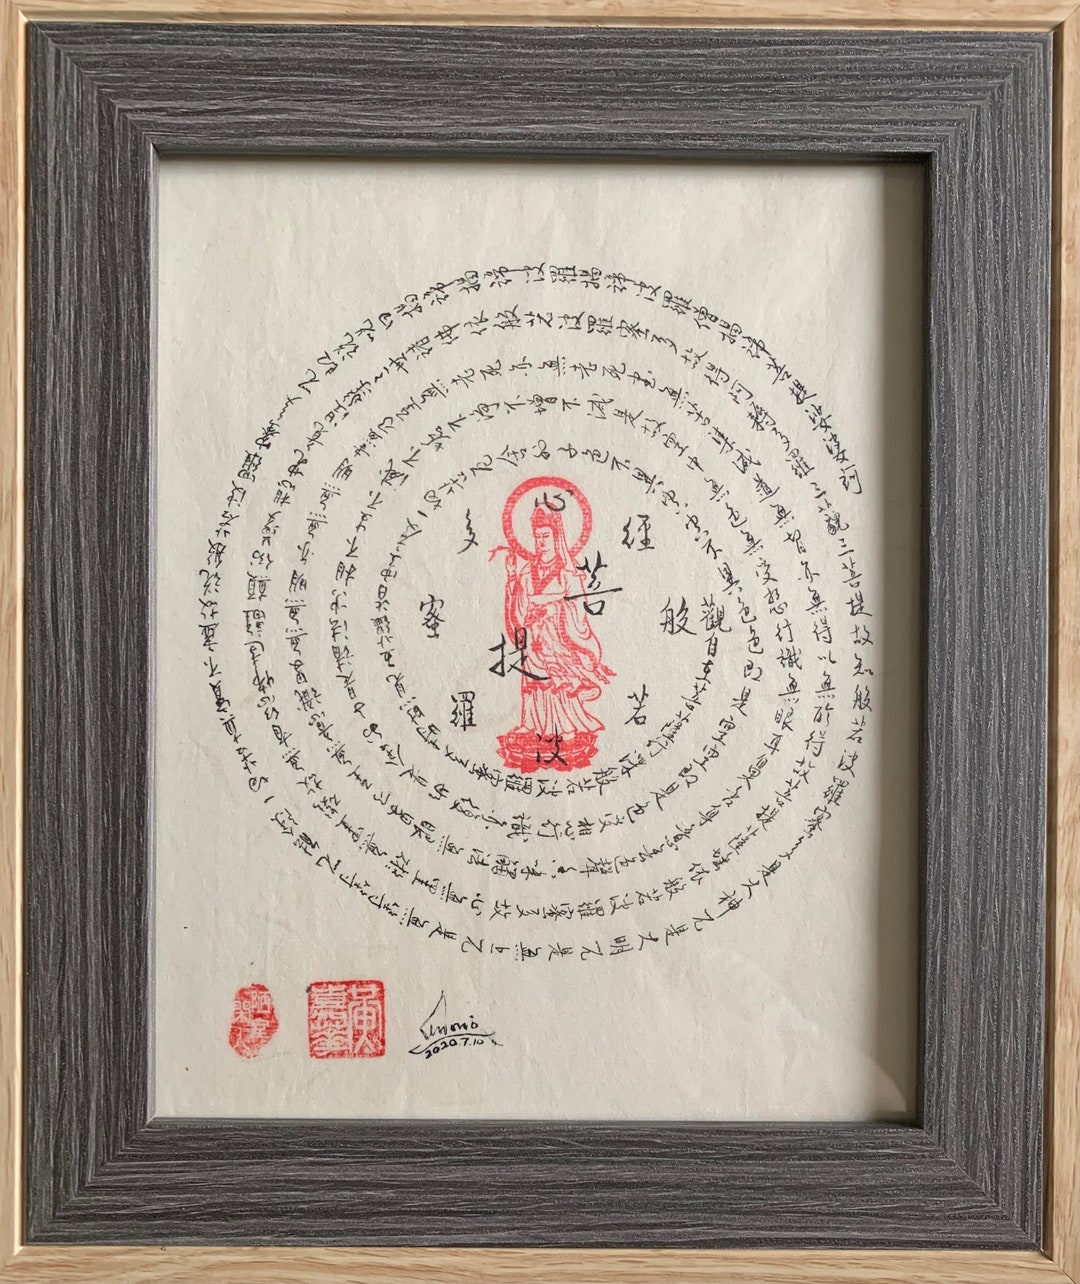 般若波羅蜜多心經
菩提
觀自在菩薩行深般若波羅蜜多時照見五蘊皆空度一切苦厄舍利子色不異空空不異色色即是空空即是色受想行識亦復如是舍利子是諸法空相不生不滅不垢不淨不增不減是故空中無色無受想行識無眼耳鼻舌身意無色聲香味觸法無眼界乃至無意識界無無明亦無無明盡乃至無老死亦無老死盡無苦集滅道無智亦無得以無所得故菩提薩埵依般若波羅蜜多故心無罣礙無罣礙故無有恐怖遠離顛倒夢想究竟涅槃三世諸佛依般若波羅蜜多故得阿耨多羅三藐三菩提故知般若波羅蜜多是大神咒是大明咒是無上咒是無等等咒能除一切苦真實不虛故說般若波羅蜜多咒即說咒曰揭諦揭諦波羅揭諦波羅僧揭諦菩提娑婆訶
2020.7.10